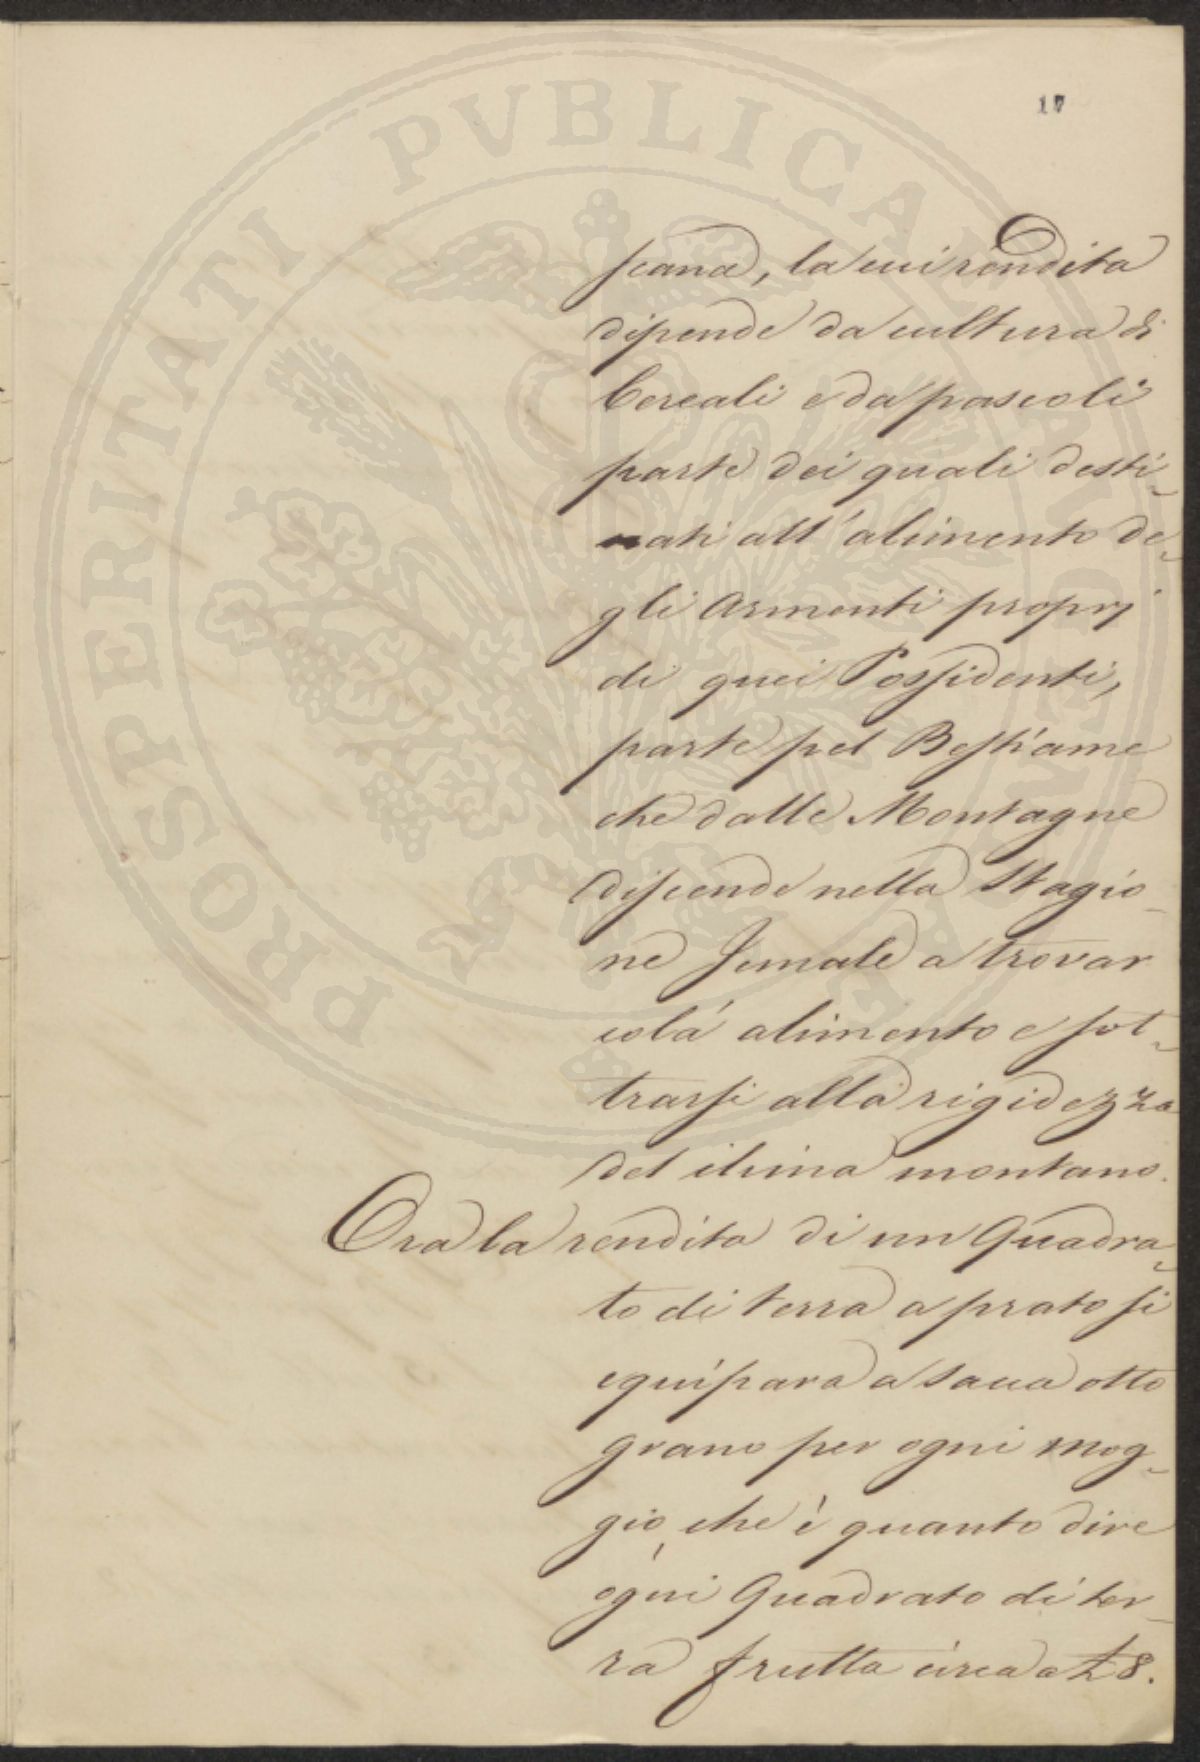 17
PROSPERITATI PVBLICAE AVGENDAE
scana, la cui rendita
dipende da cultura di
Cereali e da pascoli
parte dei quali desti¬
nati all'alimento de¬
gli Armenti proprj
di quei Possidenti,
parte pel Bestiame
che dalle Montagne
discende nella Stagio¬
ne Jemale a trovar
colá alimento e sot¬
trarsi alla rigidezza
del clima montano.
Ora la rendita di un Quadra¬
to di terra a prato si
equipara a sacca otto
grano per ogni mog¬
gio, che è quanto dire
ogni Quadrato di ter¬
ra frutta circa a £ 8.